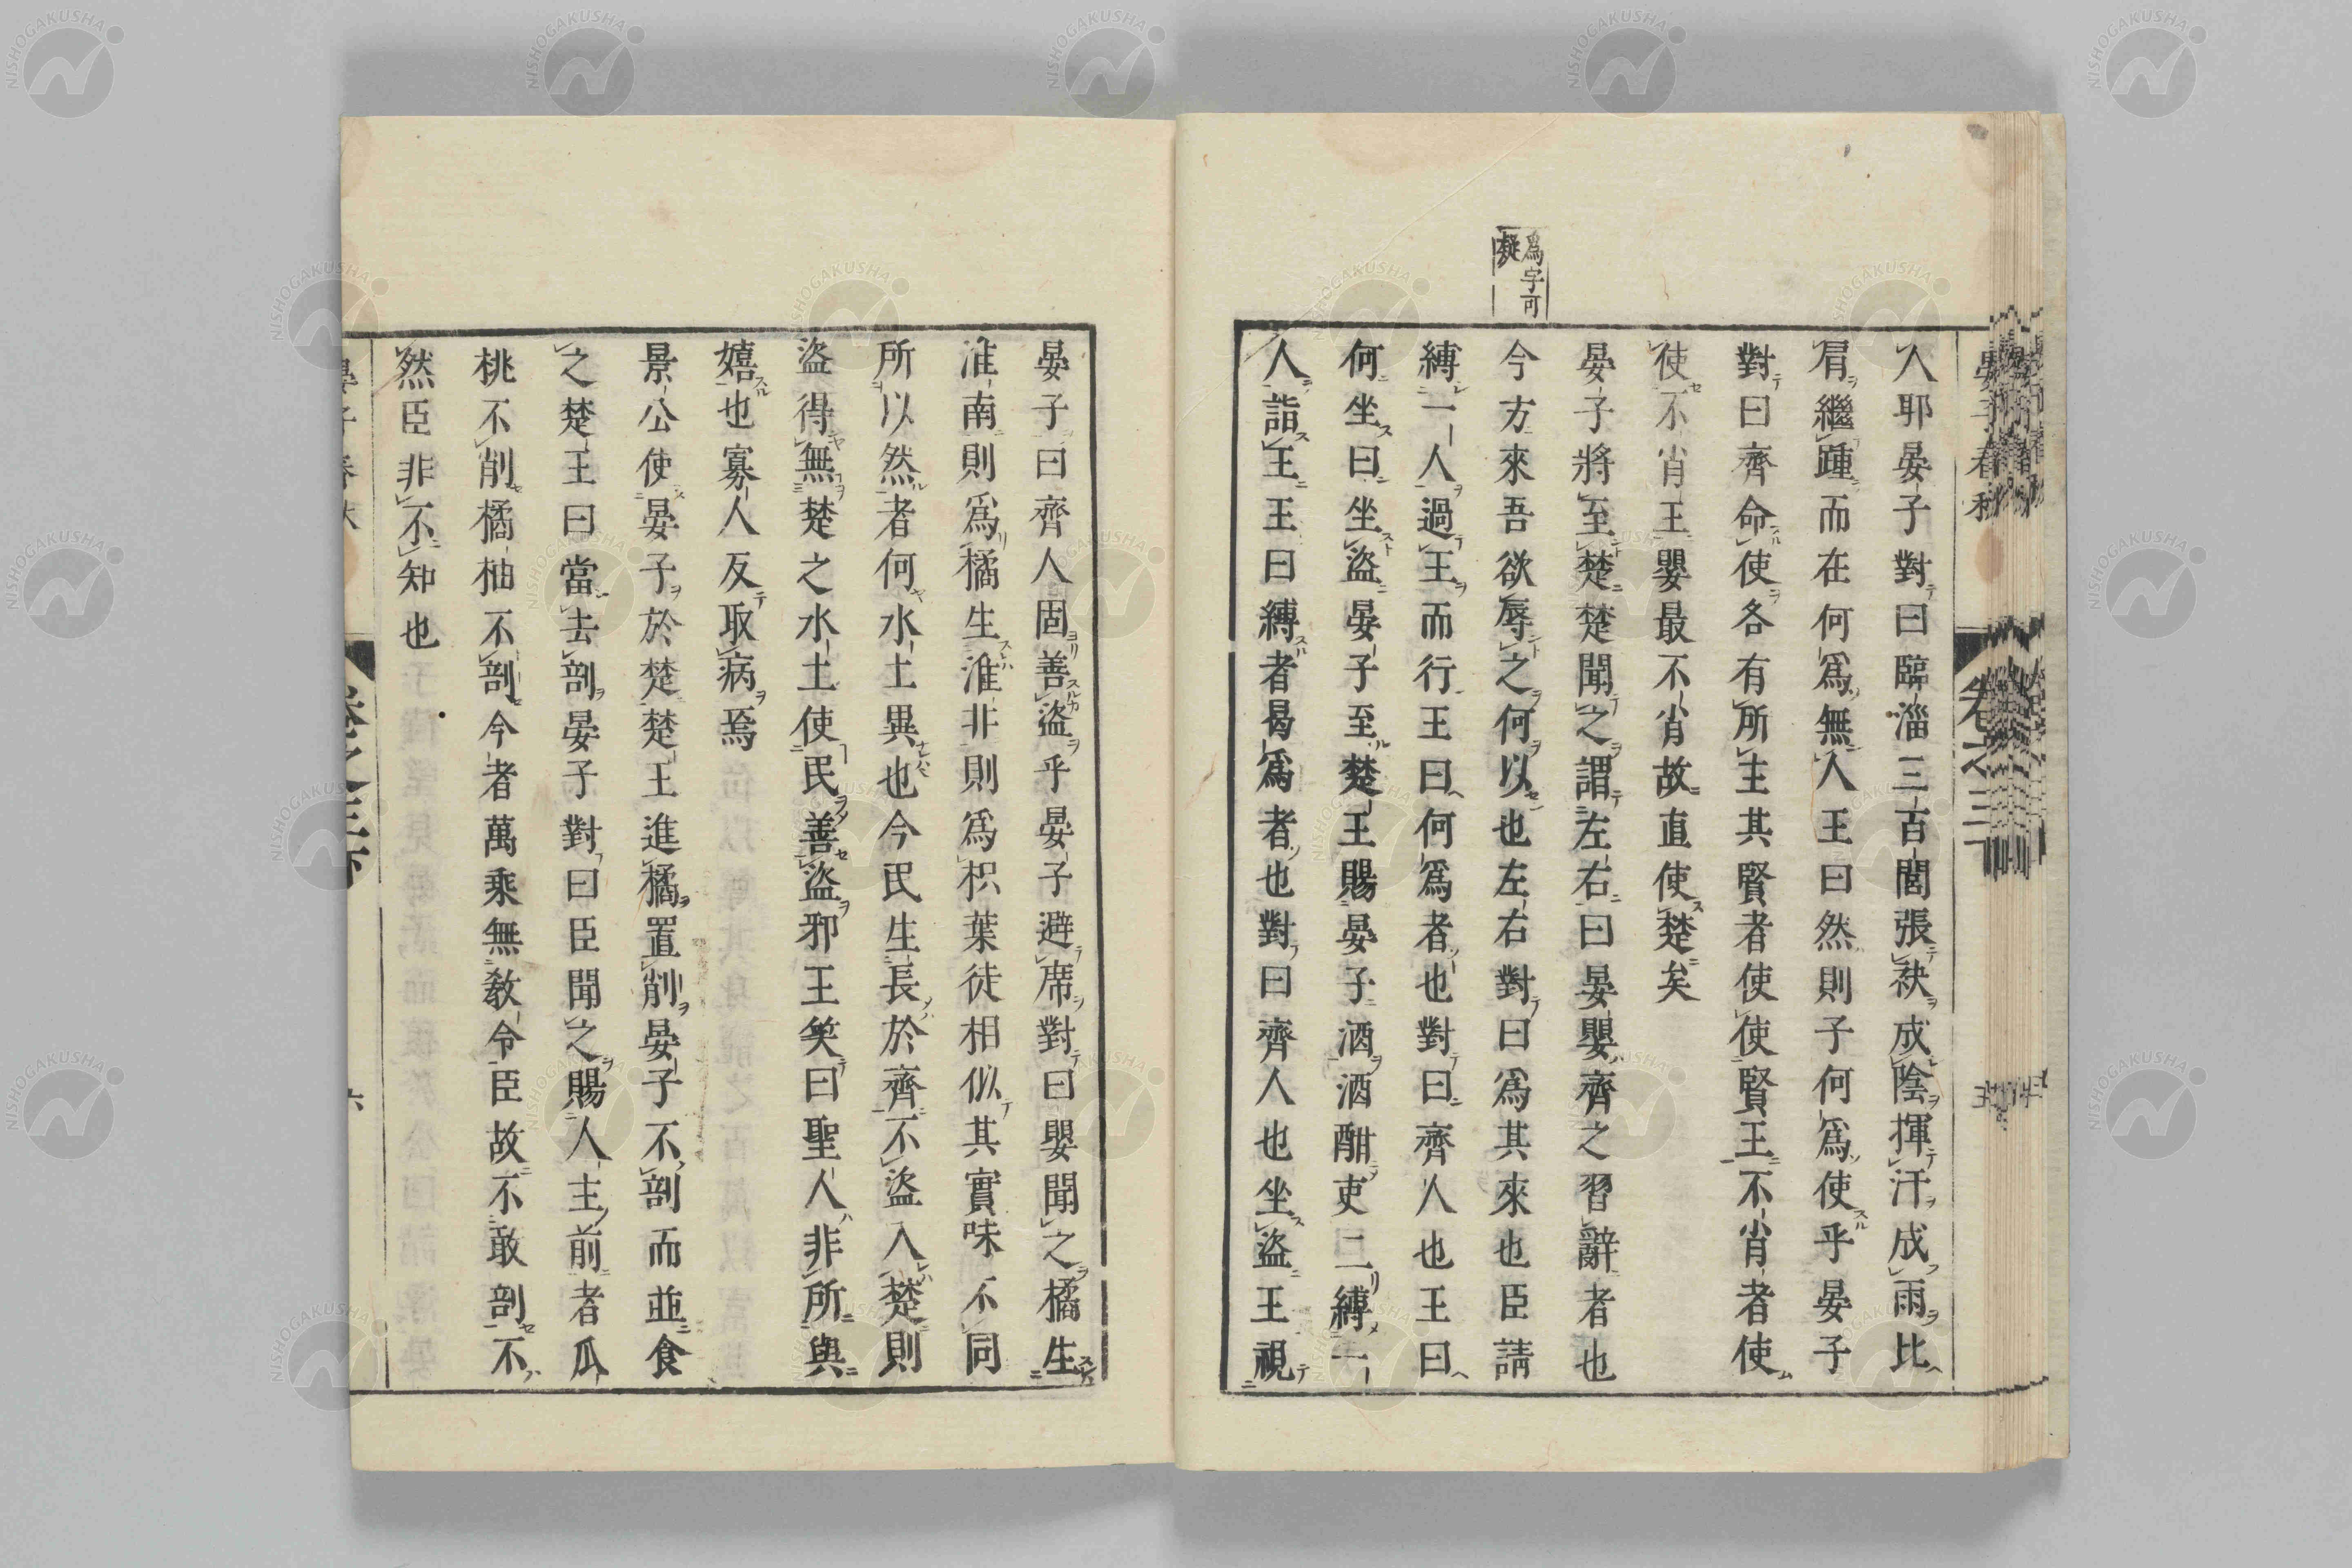 爲字可
疑
人耶晏子對曰臨淄三百閭張袂成陰揮汗成雨比
肩繼踵而在何爲無人王曰然則子何爲使乎晏子
對曰齊命使各有所主其賢者使使賢王不肖者使
使不肖王嬰最不肖故直使楚矣
晏子將至楚楚聞之謂左右曰晏嬰齊之習辭者也
今方來吾欲辱之何以也左右對曰爲其來也臣請
縛一人過王而行王曰何爲者也對曰齊人也王曰
何坐曰坐盜晏子至楚王賜晏子酒酒酣吏二縛一
人詣王王曰縛者曷爲者也對曰齊人也坐盜王視
晏子曰齊人固善盜乎晏子避席對曰嬰聞之橘生
淮南則爲橘生淮非則爲枳葉徒相似其實味不同
所以然者何水土異也今民生長於齊不盜入楚則
盜得無楚之水土使民善盜邪王笑曰聖人非所與
嬉也寡人反取病焉
景公使晏子於楚楚王進橘置削晏子不剖而並食
之楚王曰當去剖晏子對曰臣聞之賜人主前者瓜
桃不削橘柚不剖今者萬乘無教令臣故不敢剖不
然臣非不知也
NISHOGAKUSHA